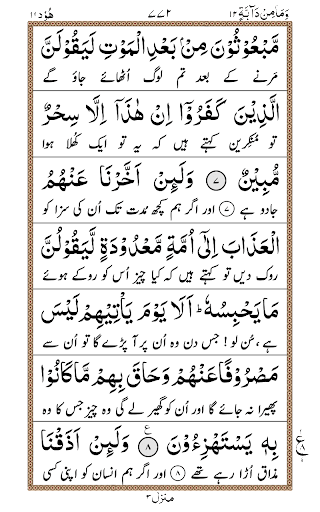 وَمَا مِنْ دَآبَّةٍ ۱۲ ۷۷۲ هُوْد ۱۱
مَّبْعُوْثُوْنَ مِنْۢ بَعْدِ الْمَوْتِ لَيَقُوْلَنَّ
مرنے کے بعد تم لوگ اُٹھائے جاؤ گے
الَّذِيْنَ كَفَرُوْۤا اِنْ هٰذَاۤ اِلَّا سِحْرٌ
تو مُنکِرین کہتے ہیں کہ یہ تو ایک کُھلا ہوا
مُّبِيْنٌ ۷ وَلَئِنْ اَخَّرْنَا عَنْهُمُ
جادو ہے ۷ اور اگر ہم کچھ مُدت تک اُن کی سزا کو
الْعَذَابَ اِلٰۤى اُمَّةٍ مَّعْدُوْدَةٍ لَّيَقُوْلُنَّ
روک دیں تو کہتے ہیں کہ کیا چیز اُس کو روکے ہوئے
مَا يَحْبِسُهٗ ؕ اَلَا يَوْمَ يَاْتِيْهِمْ لَيْسَ
ہے، سُن لو! جس دن وہ اُن پر آ پڑے گا تو اُن سے
مَصْرُوْفًا عَنْهُمْ وَحَاقَ بِهِمْ مَّا كَانُوْا
پھیرا نہ جائے گا اور اُن کو گھیر لے گی وہ چیز جس کا وہ
بِهٖ يَسْتَهْزِءُوْنَ ۸ ع وَلَئِنْ اَذَقْنَا
مذاق اُڑا رہے تھے ۸ اور اگر ہم انسان کو اپنی کسی
منزل ۳